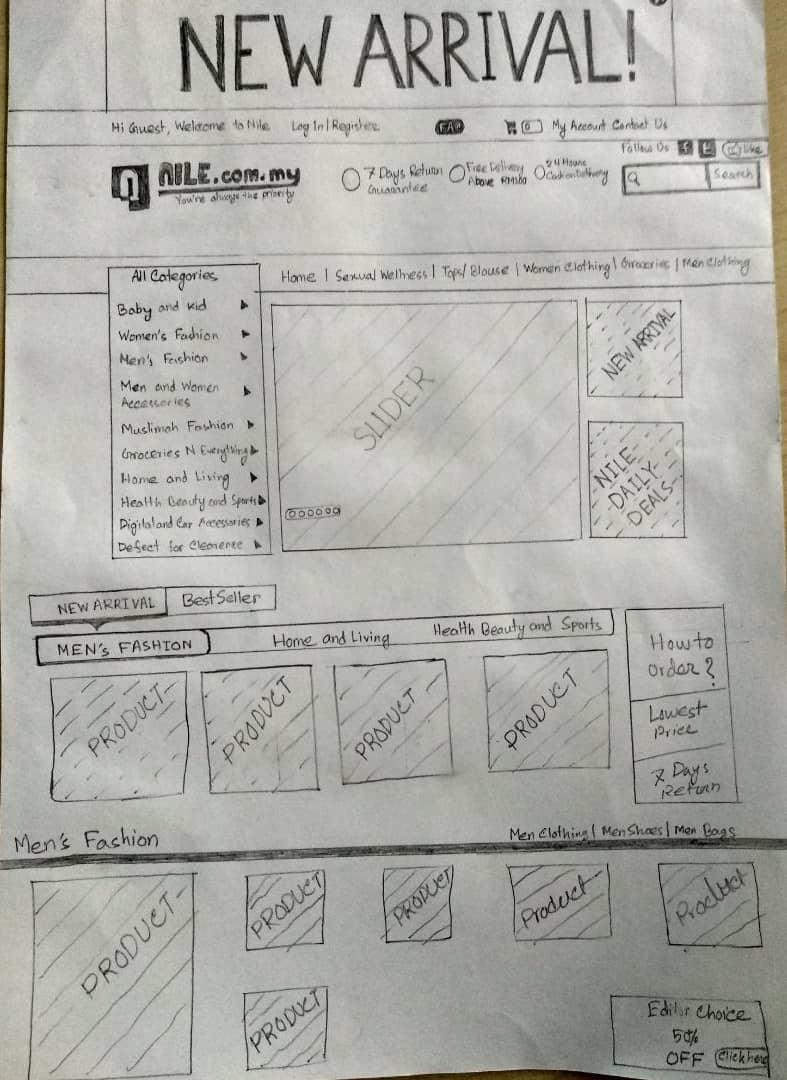 NEW ARRIVAL!
Hi Guest, Welcome to Nile Log In | Register FAQ 0 My Account Contact Us
Follow Us f t Like
NILE.com.my
You're always the priority
7 Days Return
Guarantee
Free Delivery
Above RM180
24 Hours
Cash on Delivery
Search
All Categories
Home | Sexual Wellness | Tops/ Blouse | Women Clothing | Groceries | Men Clothing
Baby and kid
Women's Fashion
Men's Fashion
Men and Women
Accessories
Muslimah Fashion
Groceries N Everything
Home and Living
Health Beauty and Sports
Digital and Car Accessories
Defect for Clearence
SLIDER
NEW ARRIVAL
NILE
DAILY
DEALS
NEW ARRIVAL Best Seller
MEN's FASHION Home and Living Health Beauty and Sports
PRODUCT PRODUCT PRODUCT PRODUCT
How to
order?
Lowest
Price
7 Days
Return
Men's Fashion Men Clothing | Men Shoes | Men Bags
PRODUCT PRODUCT PRODUCT Product Product
PRODUCT
Editor Choice
50%
OFF Click here